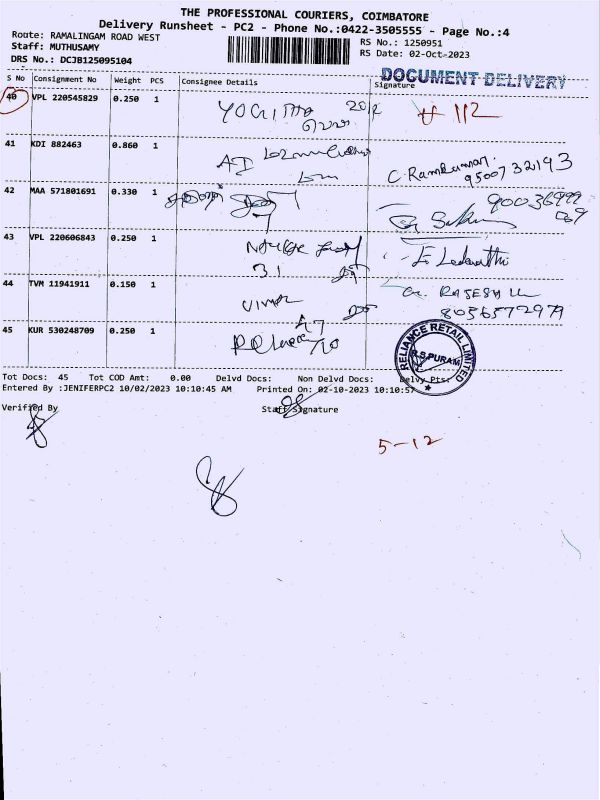 THE PROFESSIONAL COURIERS, COIMBATORE
Delivery Runsheet - PC2 - Phone No.:0422-3505555 - Page No.:4
Route: RAMALINGAM ROAD WEST
RS No.: 1250951
Staff: MUTHUSAMY
RS Date: 02-Oct-2023
DRS No.: DCJB125095104
DOCUMENT DELIVERY
S No Consignment No Weight PCS Consignee Details Signature
40 VPL 220545829 0.250 1
112
41 KDI 882463 0.860 1 AD
C. Ramkumar.
9500732193
42 MAA 571801691 0.330 1
43 VPL 220606843 0.250 1
31
44 TVM 11941911 0.150 1 VIMAL
8056572979
45 KUR 530248709 0.250 1
RELIANCE RETAIL LIMITED
R.S.PURAM
Tot Docs: 45 Tot COD Amt: 0.00 Delvd Docs: Non Delvd Docs: Delvy Pts:
Entered By :JENIFERPC2 10/02/2023 10:10:45 AM Printed On: 02-10-2023 10:10:57
Verified By Staff Signature
5-12